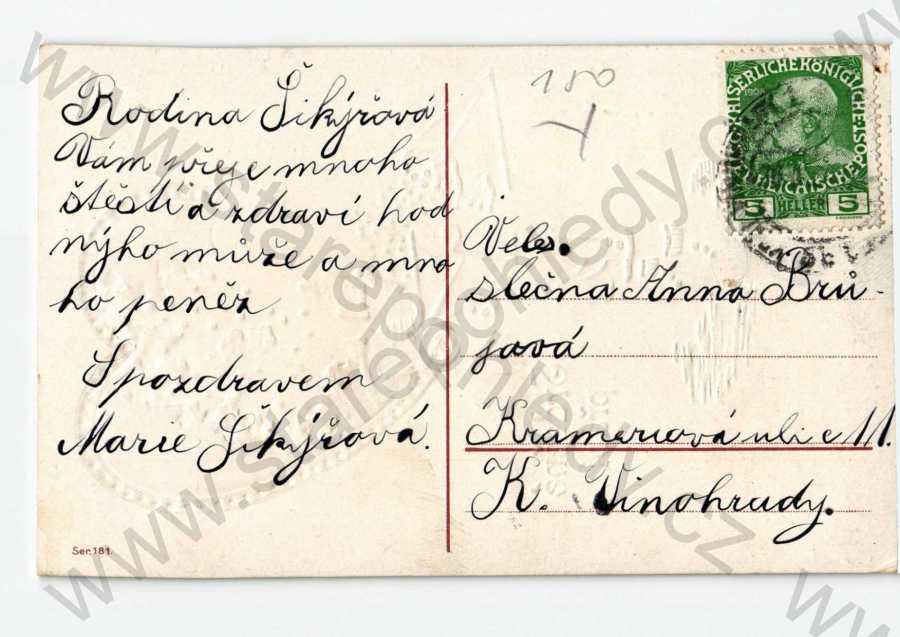 Rodina Šikýřová
Vám přeje mnoho
štěstí a zdraví hod
nýho může a mno
ho peněz
S pozdravem
Marie Šikýřová.
Ser. 181.
180
KAISERLICHE KÖNIGLICHE ÖSTERREICHISCHE POST
1908
5 HELLER 5
Vele.
slečna Anna Brů-
jová
Krameriová uli č 11.
K. Vinohrady.
www.starepohledy.cz
www.starepohledy.cz